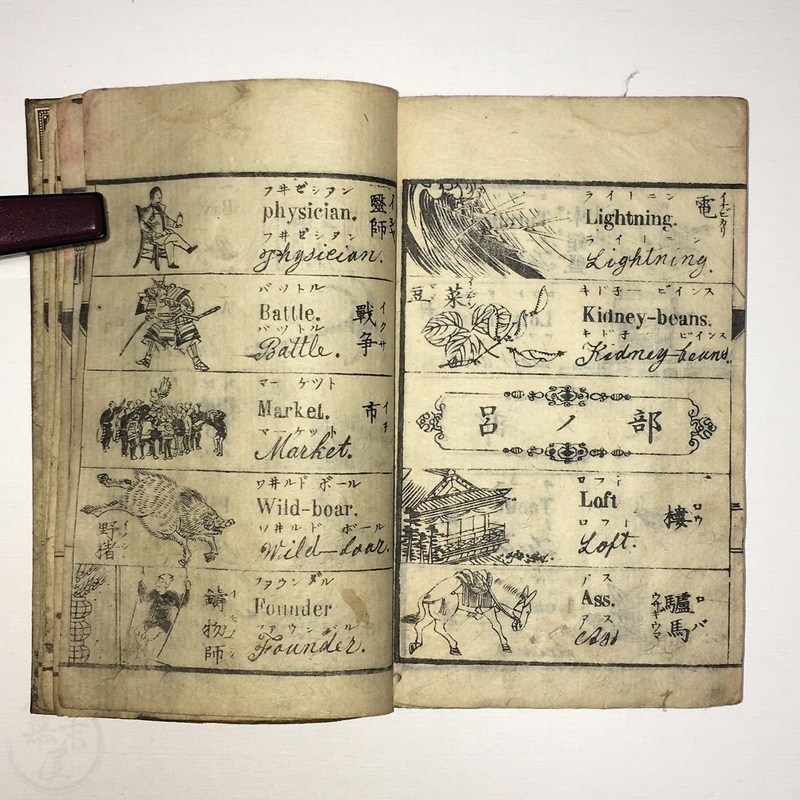 フ井ゼシアン
physician.
醫師
イシヤ
フ井ゼシアン
Physician.
バツトル
Battle.
戰争
イクサ
バツトル
Battle.
マーケツト
Market.
市
イチ
マーケツト
Market.
ワ井ルド ボール
Wild-boar.
野猪
ワ井ルド ボール
Wild-boar.
フアウンダル
Founder
鑄物師
フアウンダル
Founder.
ライトニン
Lightning.
電
イナビカリ
ライトニン
Lightning.
キド子ービインス
Kidney-beans.
菜豆
キド子 ビインス
Kidney-beans.
呂ノ部
ロフト
Loft
樓
ロウ
ロフト
Loft.
アス
Ass.
驢馬
ロバ
ウサギウマ
アス
Ass